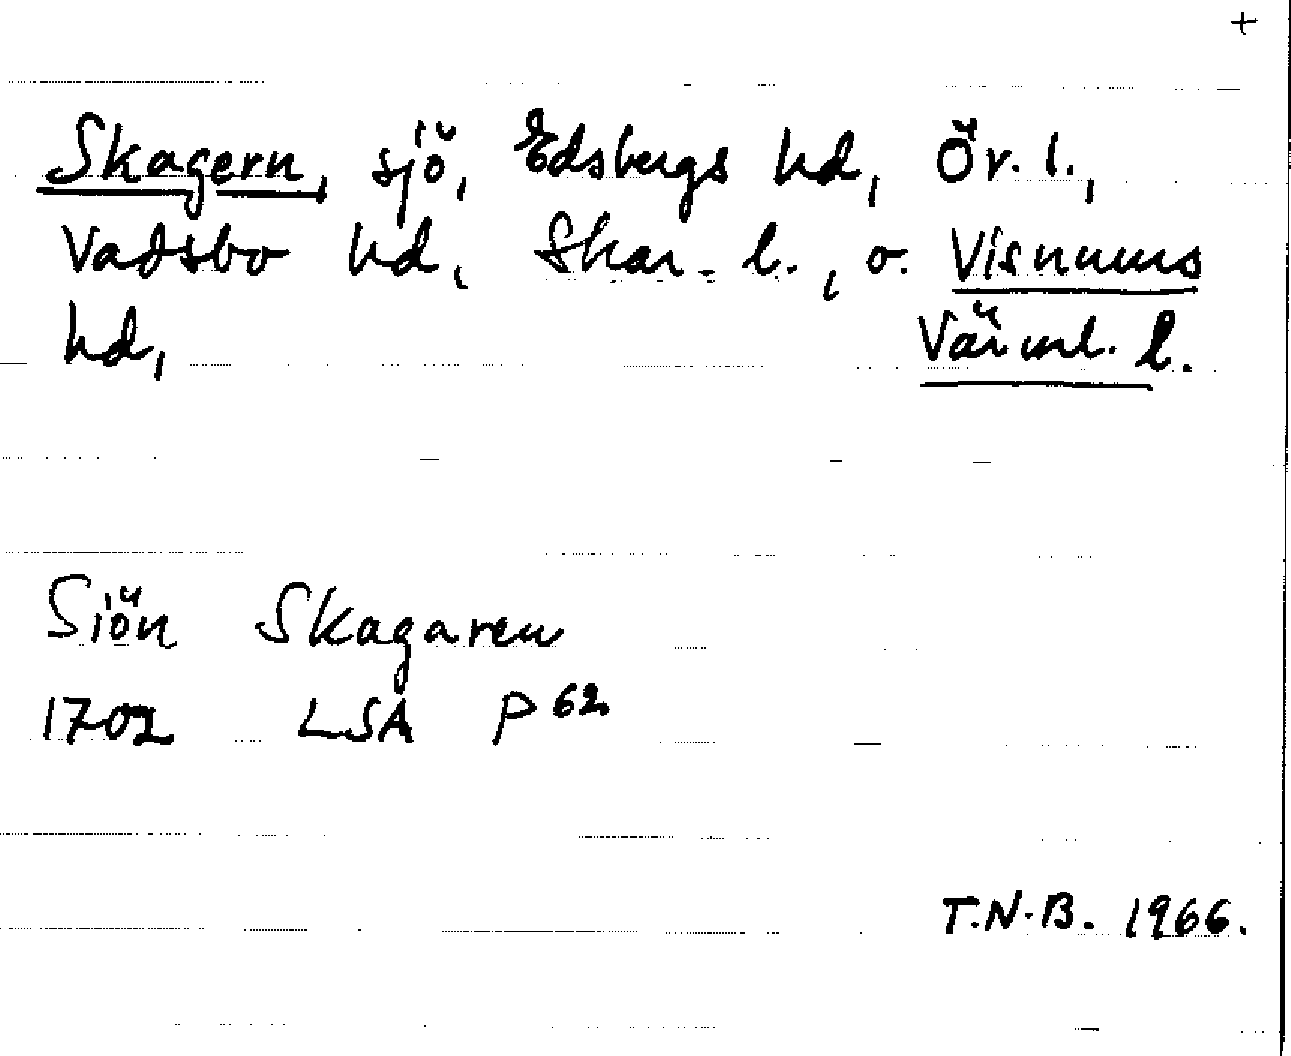 +
Skagern, sjö, Edsbergs hd, Ör. l.,
Vadsbo hd, Skar. l., o. Visnums
hd, Värml. l.
Siön Skagaren
1702 LSA P 62
T.N.B. 1966.